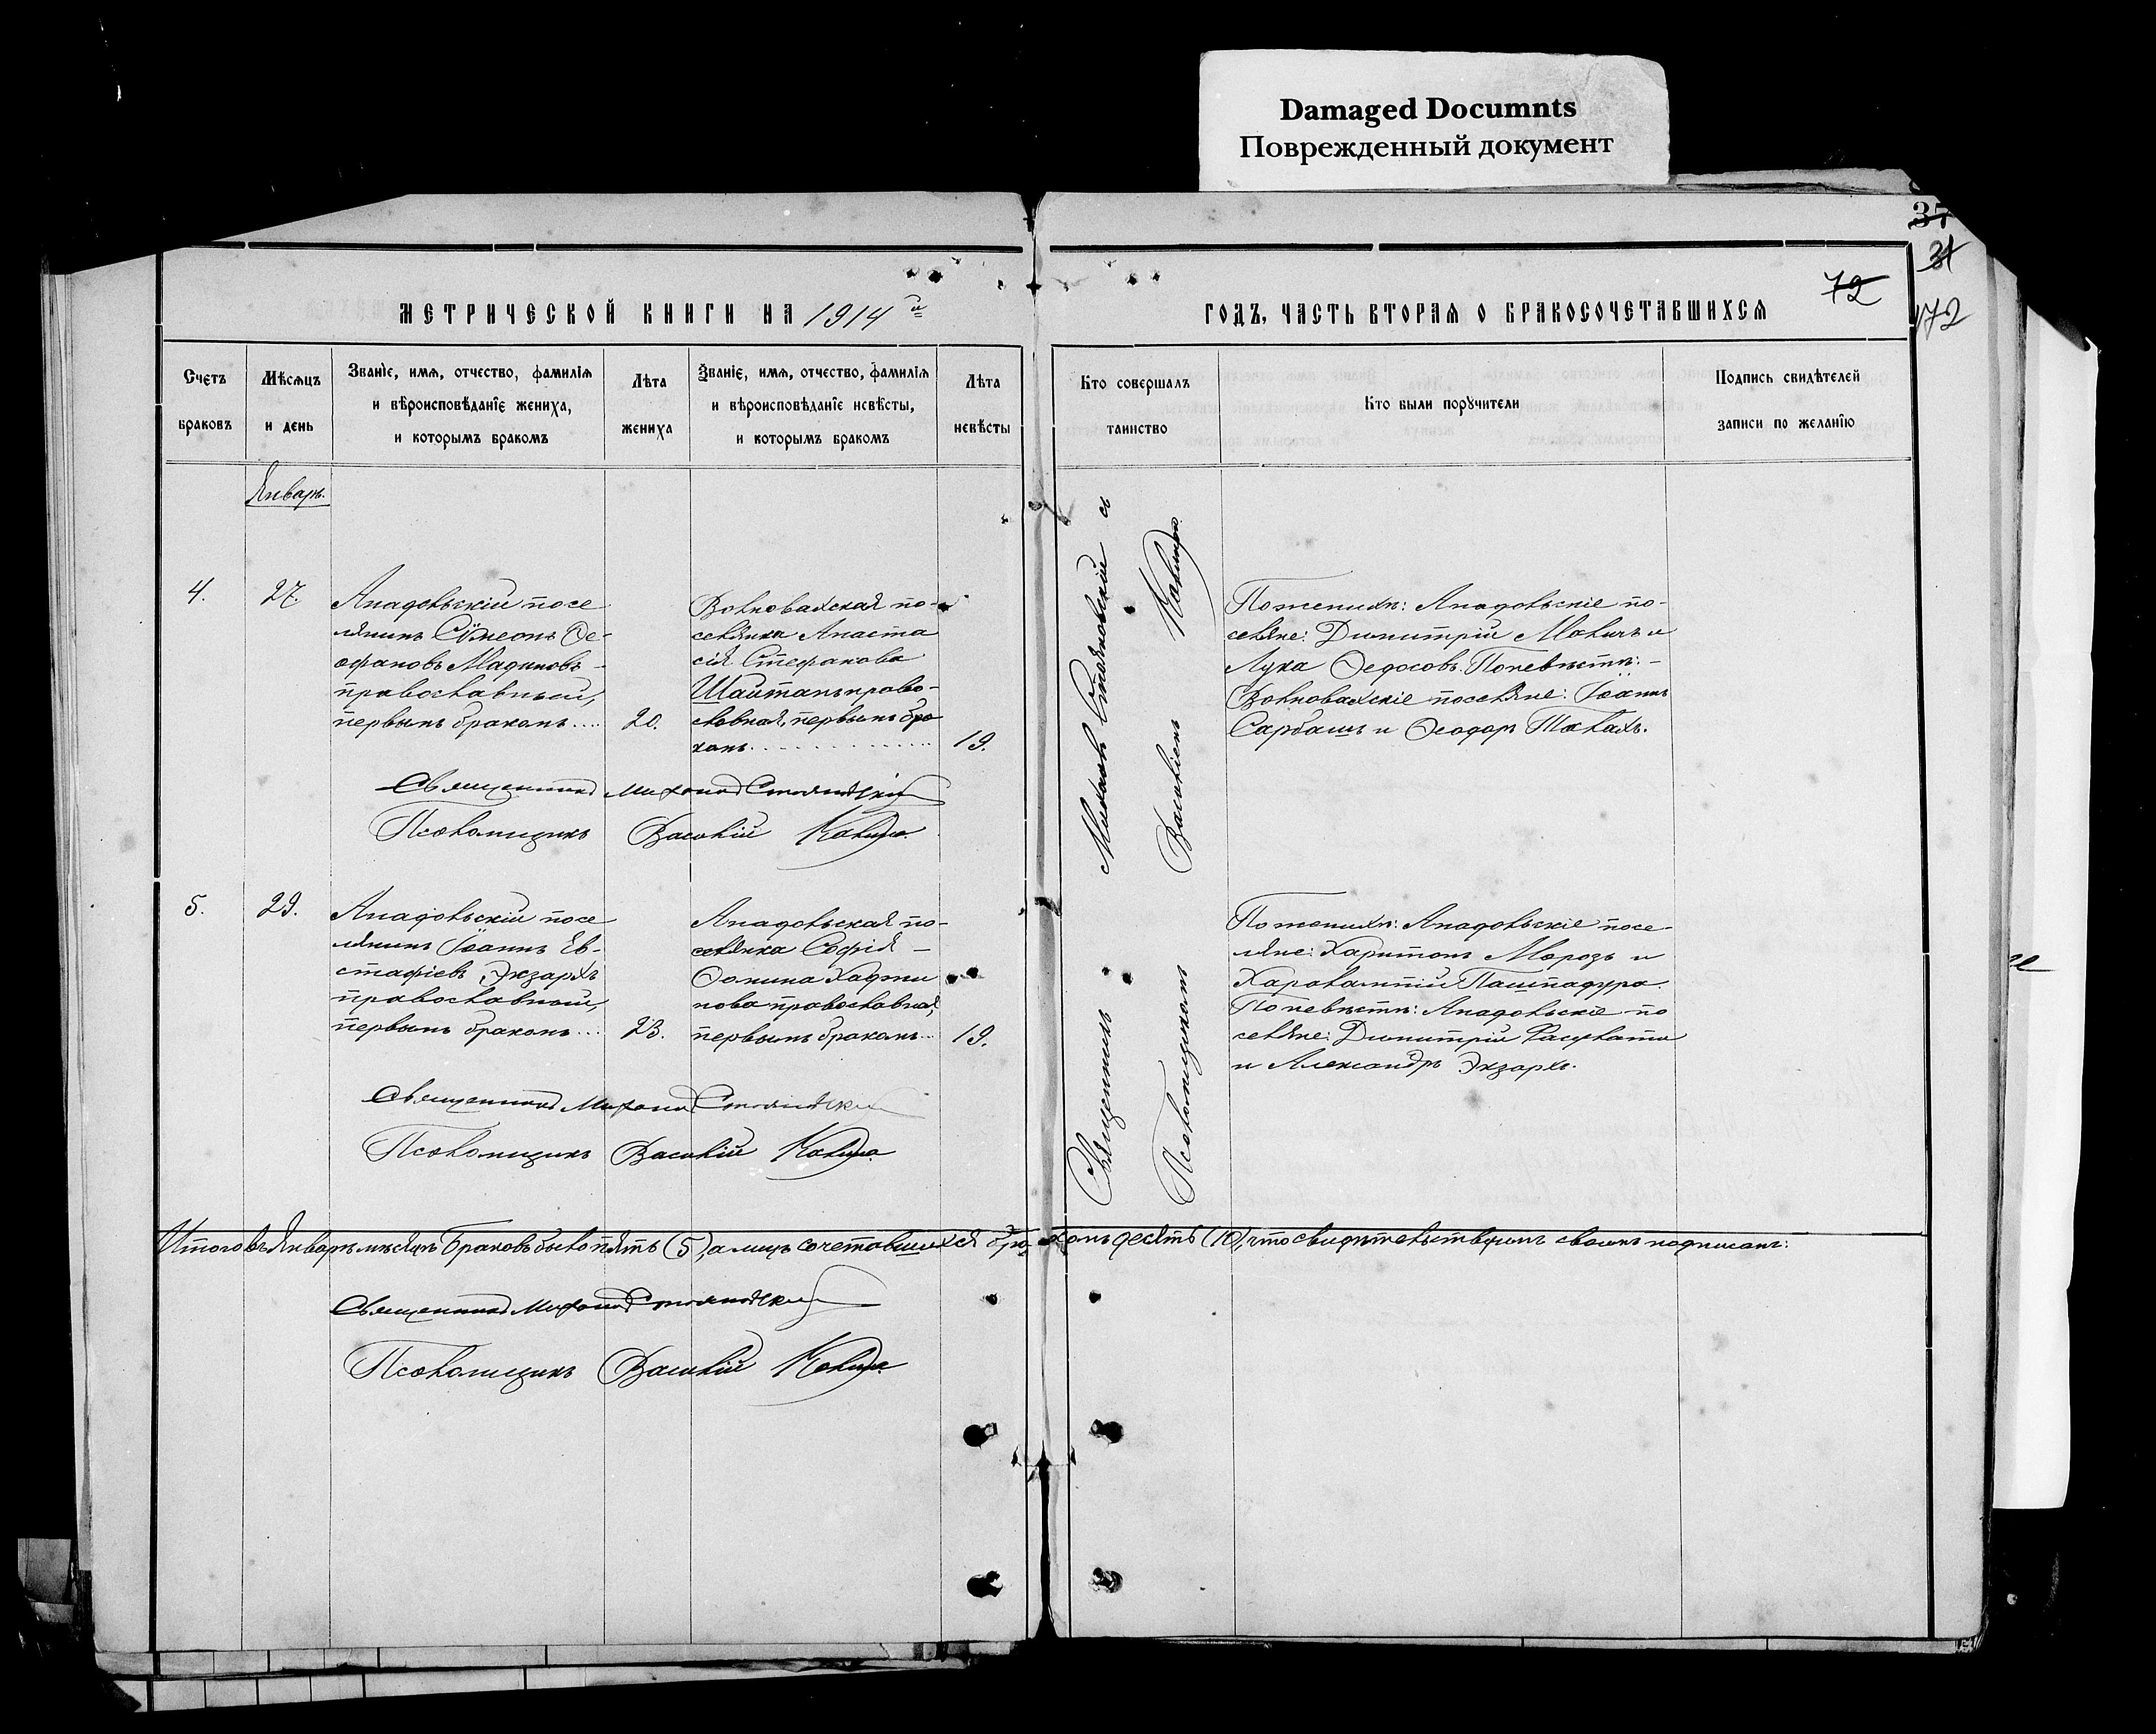 Damaged Documnts
Поврежденный документ
37
31
72
172
МЕТРИЧЕСКОЙ КНИГИ НА 1914 й
ГОДЪ, ЧАСТЬ ВТОРАЯ О БРАКОСОЧЕТАВШИХСЯ
Счетъ
браковъ
Мѣсяцъ
и день
Званіе, имя, отчество, фамилія
и вѣроисповѣданіе жениха,
и которымъ бракомъ
Лѣта
жениха
Званіе, имя, отчество, фамилія
и вѣроисповѣданіе невѣсты,
и которымъ бракомъ
Лѣта
невѣсты
Кто совершалъ
таинство
Кто были поручители
Подпись свидѣтелей
записи по желанію
Январь.
4.
27.
Анадольскій посе
лянинъ Сѵмеонъ Ѳе-
офановъ Мадиновъ -
православный,
первымъ бракомъ....
20.
Волновахская по-
селянка Анаста
сія Стефанова
Шайтанъ право-
славная, первымъ бра
комъ
19.
Священникъ Михаилъ Стояновскій
Псаломщикъ Василій
Священникъ Михаилъ Стояновскій съ
Псаломщикомъ Василіемъ
По женихѣ: Анадольскіе по-
селяне: Димитрій и
Лука Федосовъ. По невѣстѣ: -
Волновахскіе поселяне: Іоаннъ
Сарбашъ и Ѳеодоръ
5.
29.
Анадольскій посе
лянинъ Іоаннъ Ев-
стафіевъ Экзархъ
православный,
первымъ бракомъ...
23.
Анадольская по-
селянка Софія -
Ѳомина Хаджи
нова православная,
первымъ бракомъ..
19.
По женихѣ: Анадольскіе посе-
ляне: Харитонъ Морозъ и
Харалампій Пашпадура.
По невѣстѣ: Анадольскіе по
селяне: Димитрій
и Александръ Экзархъ.
Священникъ Михаилъ Стояновскій
Псаломщикъ Василій
Итого въ Январѣ мѣсяцѣ браковъ было пять (5), а лицъ сочетавшихся бра-комъ десять (10), что свидѣтельствуемъ своимъ подписомъ:
Священникъ Михаилъ Стояновскій
Псаломщикъ Василій